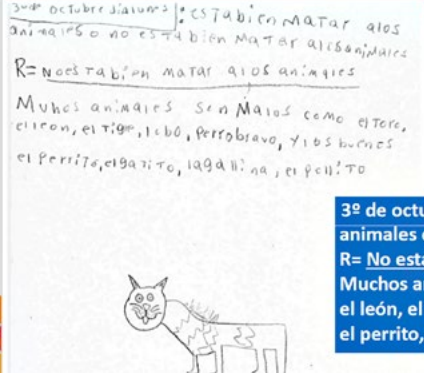 3º de octubre día lunes : esTabien MaTar alos
animales o no esTa bien MaTar alosanimales
R= Noes Tabien maTar alos animales
Muhos animales Son Malos como elToro,
elleon, el Tigre, lobo, Perrobravo, Ylos buenos
el PerriTo, elgaTiTo, lagallina, el PolliTo
3º de octu
animales
R= No esta
Muchos a
el león, el
el perrito,